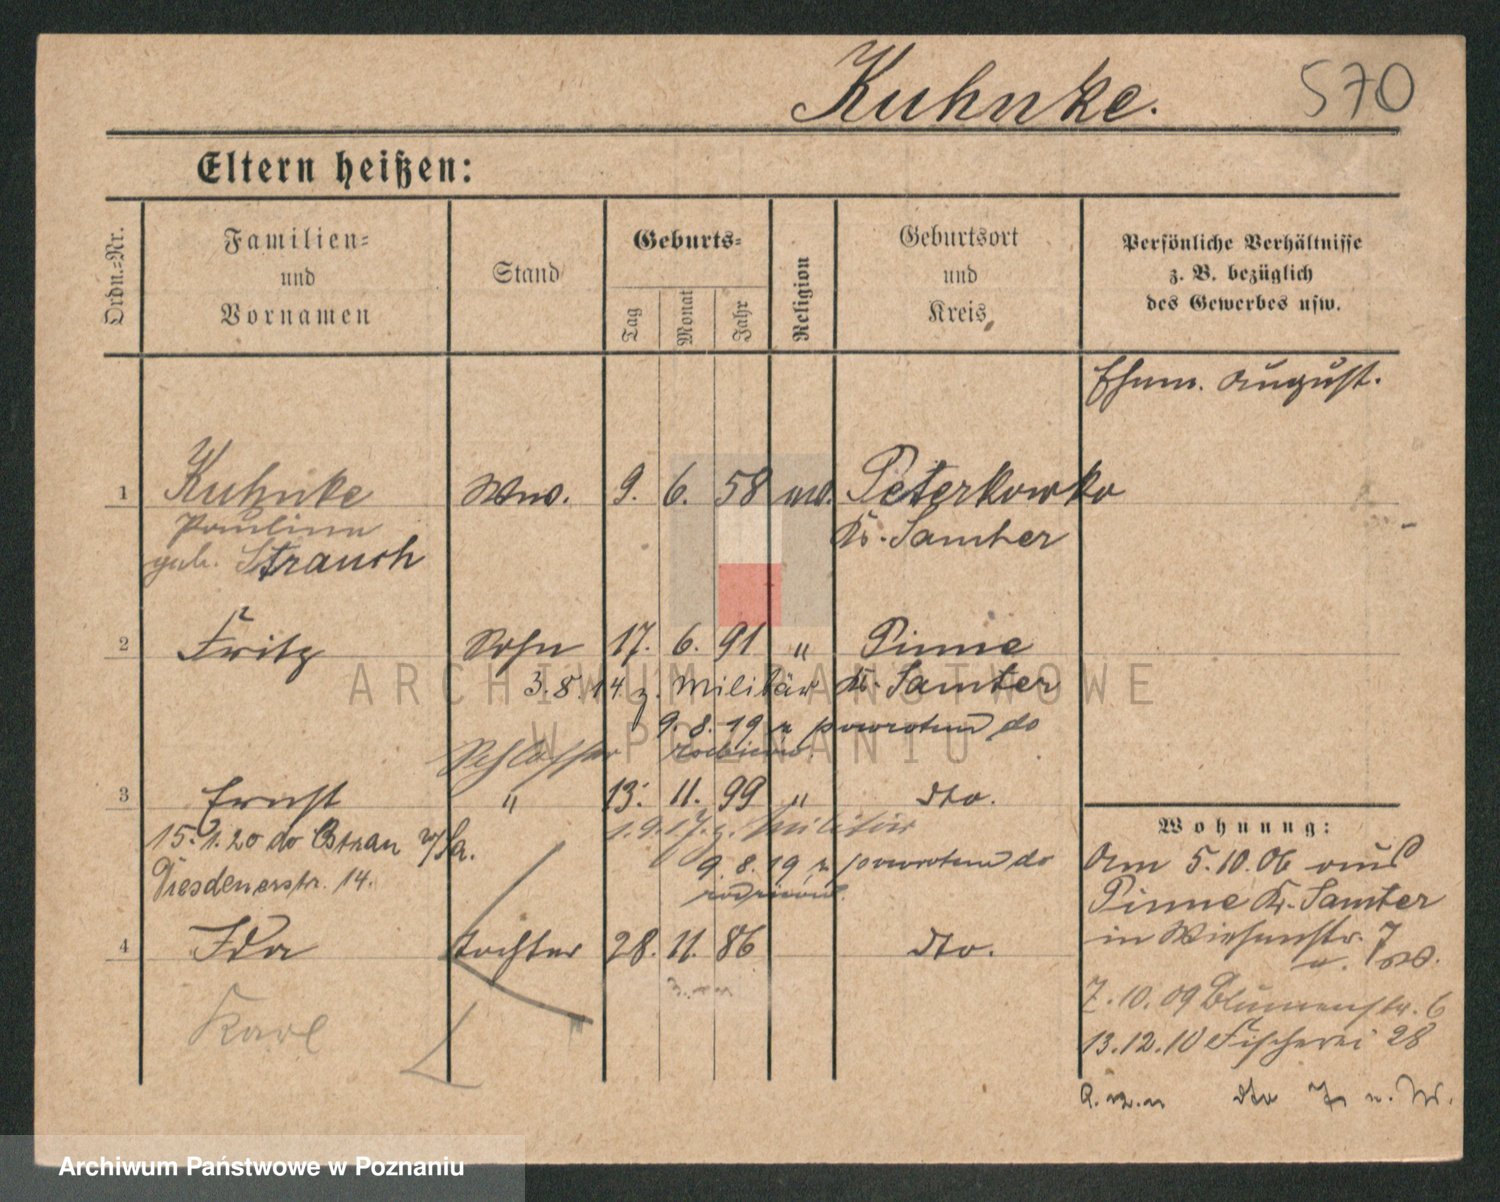 Kuhnke. 570
Eltern heißen:
Ordn.=Nr.
Familien=
und
Vornamen
Stand
Geburts=
Tag
Monat
Jahr
Religion
Geburtsort
und
Kreis
Persönliche Verhältnisse
z. B. bezüglich
des Gewerbes usw.
Ehem. August.
1 Kuhnke Wwe. 9. 6. 58 Peterkowko
Pauline Kr. Samter
geb. Strauch
2 Fritz Sohn 17. 6. 91 " Pinne
3.8.14 z. Militär Kr. Samter
9.8.19 z powrotem do
Schlosser
3 Ernst " 13. 11. 99 " dto.
1.9.17. z. Militär
15.1.20 do Ostrau i/Sa.
9.8.19 z powrotem do
Dresdenerstr. 14.
4 Ida Tochter 28. 11. 86 dto.
Karl
Wohnung:
Am 5.10.06 aus
Pinne Kr. Samter
in Wiesenstr. 7
7.10.09 Blumenstr. 6
13.12.10 Fischerei 28
dto
ARCHIWUM PAŃSTWOWE
W POZNANIU
Archiwum Państwowe w Poznaniu